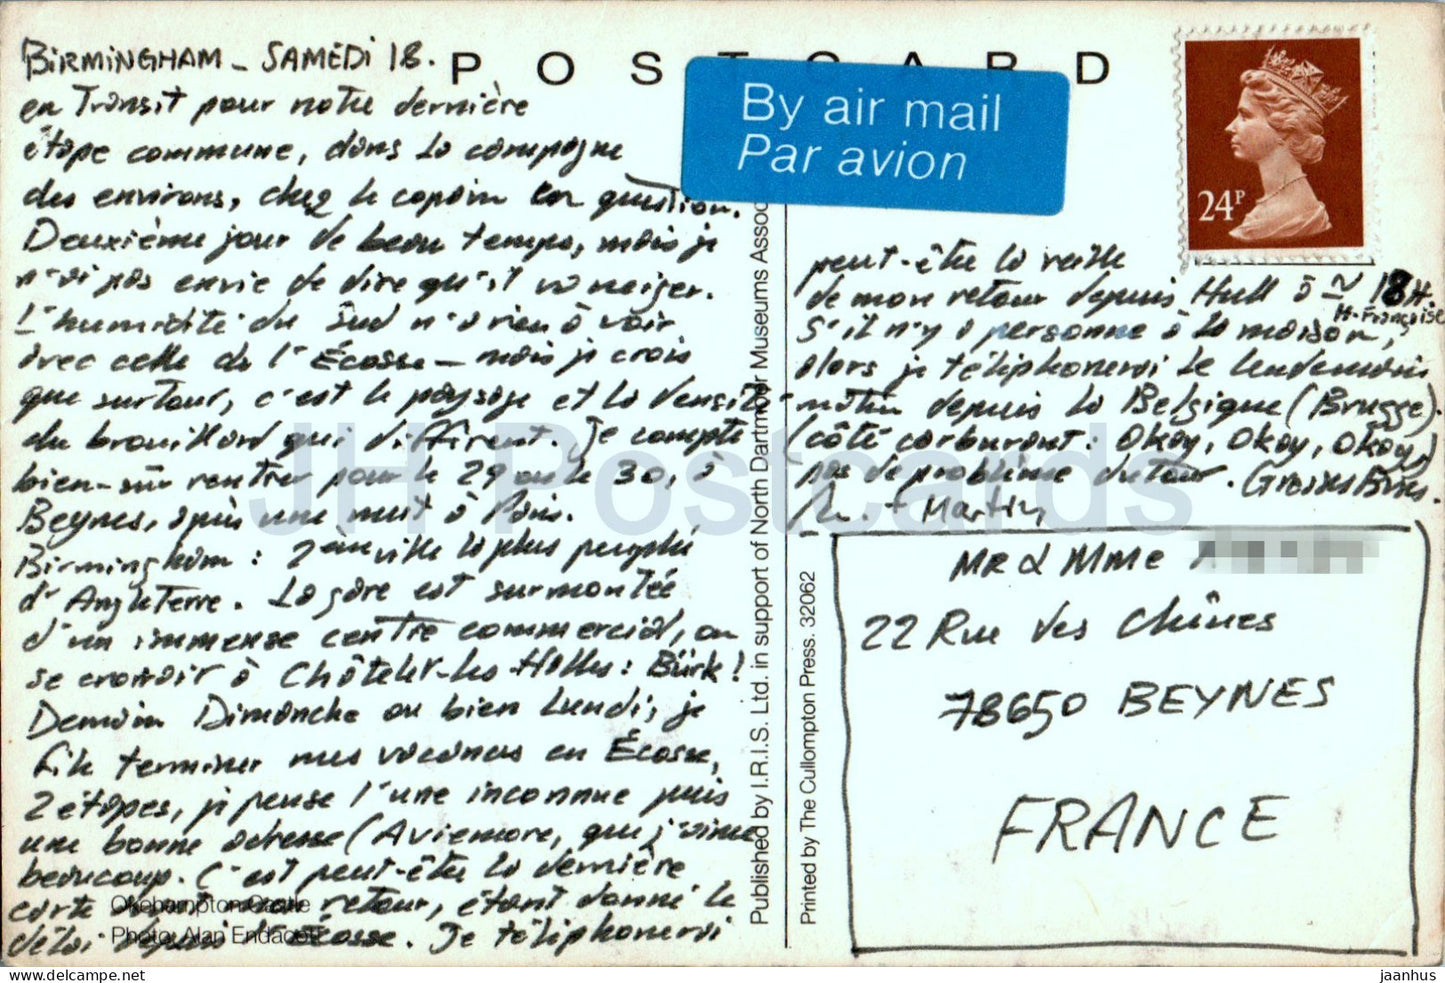 POSTCARD
BIRMINGHAM - SAMEDI 18.
en Transit pour notre dernière
étape commune, dans la campagne
des environs, chez le copain en question.
Deuxième jour de beau temps, mais je
n'ai pas envie de dire qu'il va neiger.
L'humidité du Sud n'a rien à voir
avec celle de l'Écosse - mais je crois
que surtout, c'est le paysage et la densité
du brouillard qui diffèrent. Je compte
bien-sûr rentrer pour le 29 ou le 30, à
Beynes, après une nuit à Paris.
Birmingham : 2ème ville la plus peuplée
d'Angleterre. La gare est surmontée
d'un immense centre commercial, on
se croirait à Châtelet-les-Halles : Bürk!
Demain Dimanche ou bien Lundi, je
file terminer mes vacances en Écosse,
2 étapes, je pense l'une inconnue puis
une bonne adresse (Aviemore, que j'aime
beaucoup. C'est peut-être la dernière
carte avant mon retour, étant donné le
délai depuis l'Écosse. Je téléphonerai
Okehampton Castle
Photo: Alan Endacott
Published by I.R.I.S. Ltd. in support of North Dartmoor Museums Assoc
Printed by The Cullompton Press. 32062
By air mail
Par avion
24P
peut-être la veille
de mon retour depuis Hull à ~ 18H.
H. Française
S'il n'y a personne à la maison,
alors je téléphonerai le lendemain
matin depuis la Belgique (Brugge).
(côté carburant : Okay, Okay, Okay,)
pas de problème du tout. Grosses Bises.
+ Martin
MR & MME
22 Rue des Chênes
78650 BEYNES
FRANCE
JH Postcards
https://www.delcampe.net
jaanhus